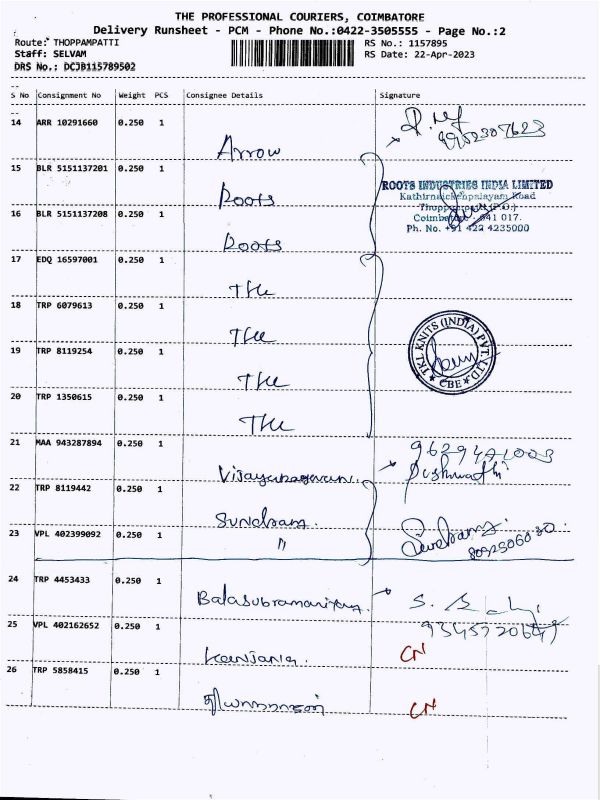 THE PROFESSIONAL COURIERS, COIMBATORE
Delivery Runsheet - PCM - Phone No.:0422-3505555 - Page No.:2
Route: THOPPAMPATTI RS No.: 1157895
Staff: SELVAM RS Date: 22-Apr-2023
DRS No.: DCJB115789502
S No Consignment No Weight PCS Consignee Details Signature
14 ARR 10291660 0.250 1 Arrow
15 BLR 5151137201 0.250 1 Roots
ROOTS INDUSTRIES INDIA LIMITED
Road
Coimbatore - 641 017.
Ph. No. +91 422 4235000
16 BLR 5151137208 0.250 1 Roots
17 EDQ 16597001 0.250 1
18 TRP 6079613 0.250 1
TKL KNITS (INDIA) PVT LTD
CBE
19 TRP 8119254 0.250 1
20 TRP 1350615 0.250 1
21 MAA 943287894 0.250 1
22 TRP 8119442 0.250 1 Sundram.
23 VPL 402399092 0.250 1 "
24 TRP 4453433 0.250 1 Balasubramaniyam.
25 VPL 402162652 0.250 1 CN
26 TRP 5858415 0.250 1 CN